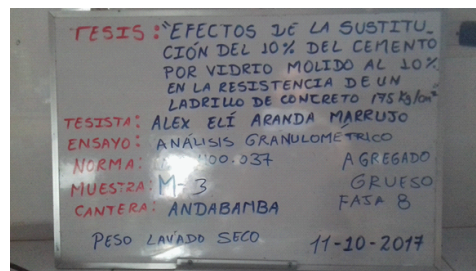 TESIS: "EFECTOS DE LA SUSTITU_
CIÓN DEL 10% DEL CEMENTO
POR VIDRIO MOLIDO AL 10%
EN LA RESISTENCIA DE UN
LADRILLO DE CONCRETO 175 Kg/cm²
TESISTA: ALEX ELÍ ARANDA MARRUJO
ENSAYO: ANÁLISIS GRANULOMÉTRICO
NORMA: 400.037 AGREGADO
MUESTRA: M-3 GRUESO
CANTERA: ANDABAMBA FAJA 8
PESO LAVADO SECO 11-10-2017